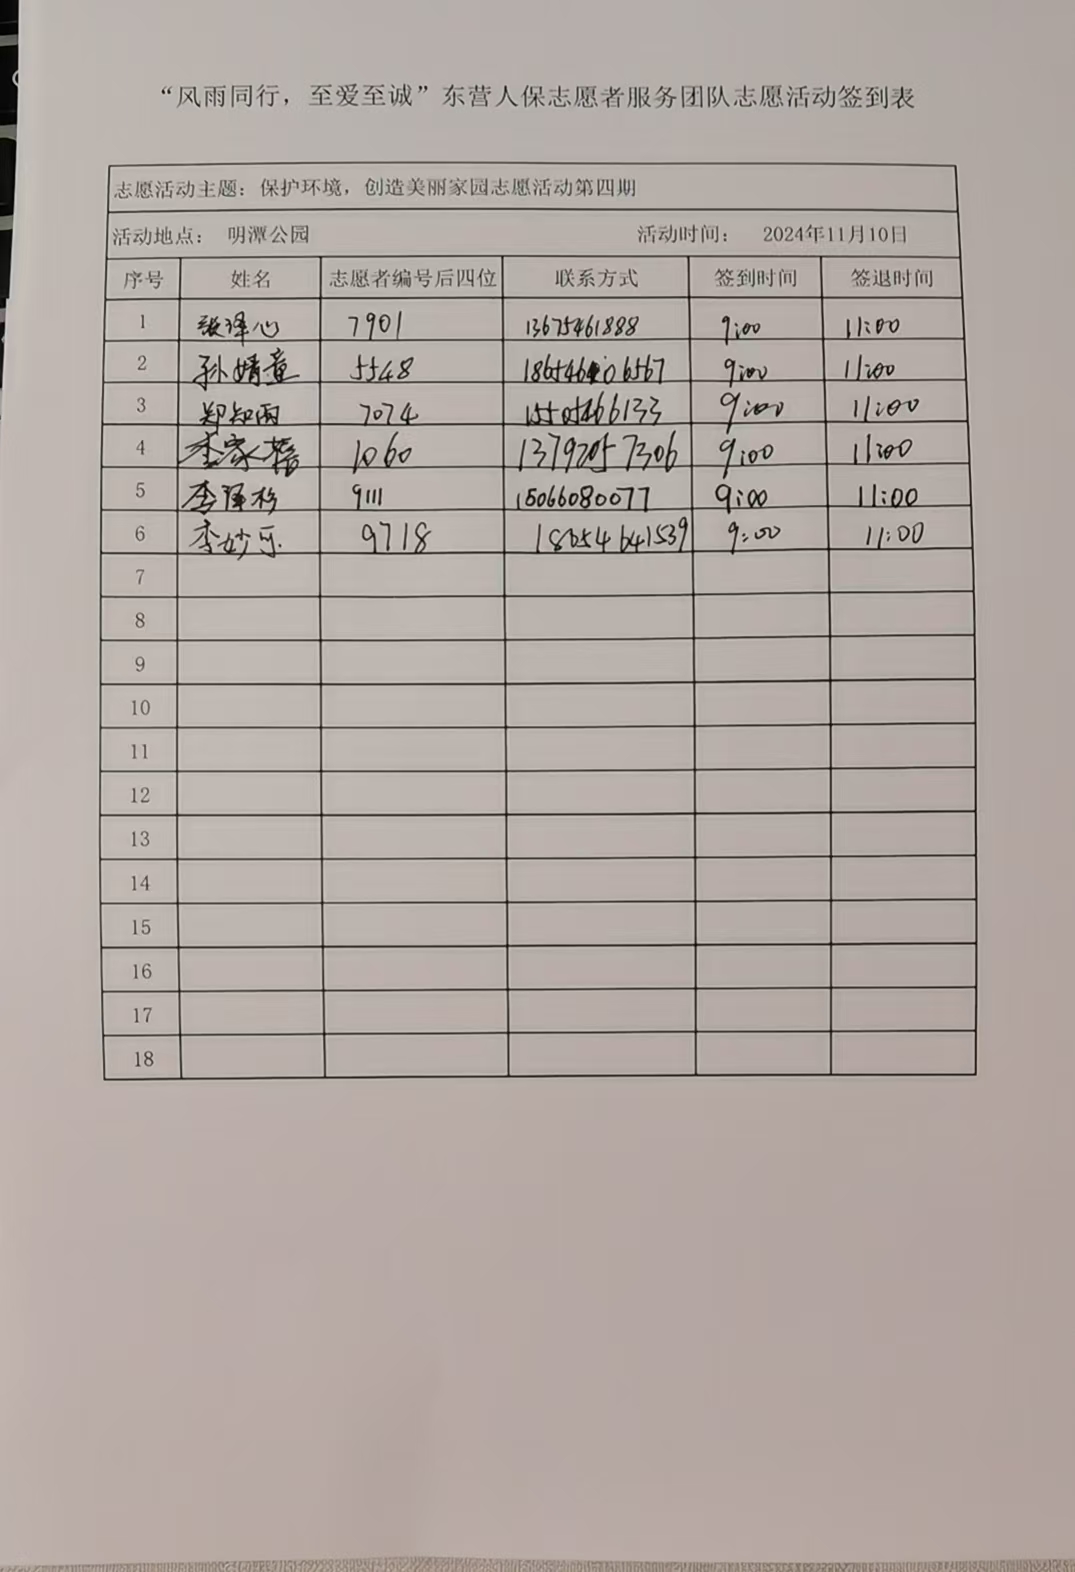 “风雨同行，至爱至诚”东营人保志愿者服务团队志愿活动签到表
志愿活动主题：保护环境，创造美丽家园志愿活动第四期
活动地点： 明潭公园 活动时间： 2024年11月10日
序号 姓名 志愿者编号后四位 联系方式 签到时间 签退时间
1 张泽心 7901 13675461888 9:00 11:00
2 孙婧童 5548 9:00 11:00
3 郑知雨 7074 15505466133 9:00 11:00
4 李家 1060 13792057306 9:00 11:00
5 李泽杉 9111 15066080077 9:00 11:00
6 李妙乐 9718 18654641539 9:00 11:00
7
8
9
10
11
12
13
14
15
16
17
18